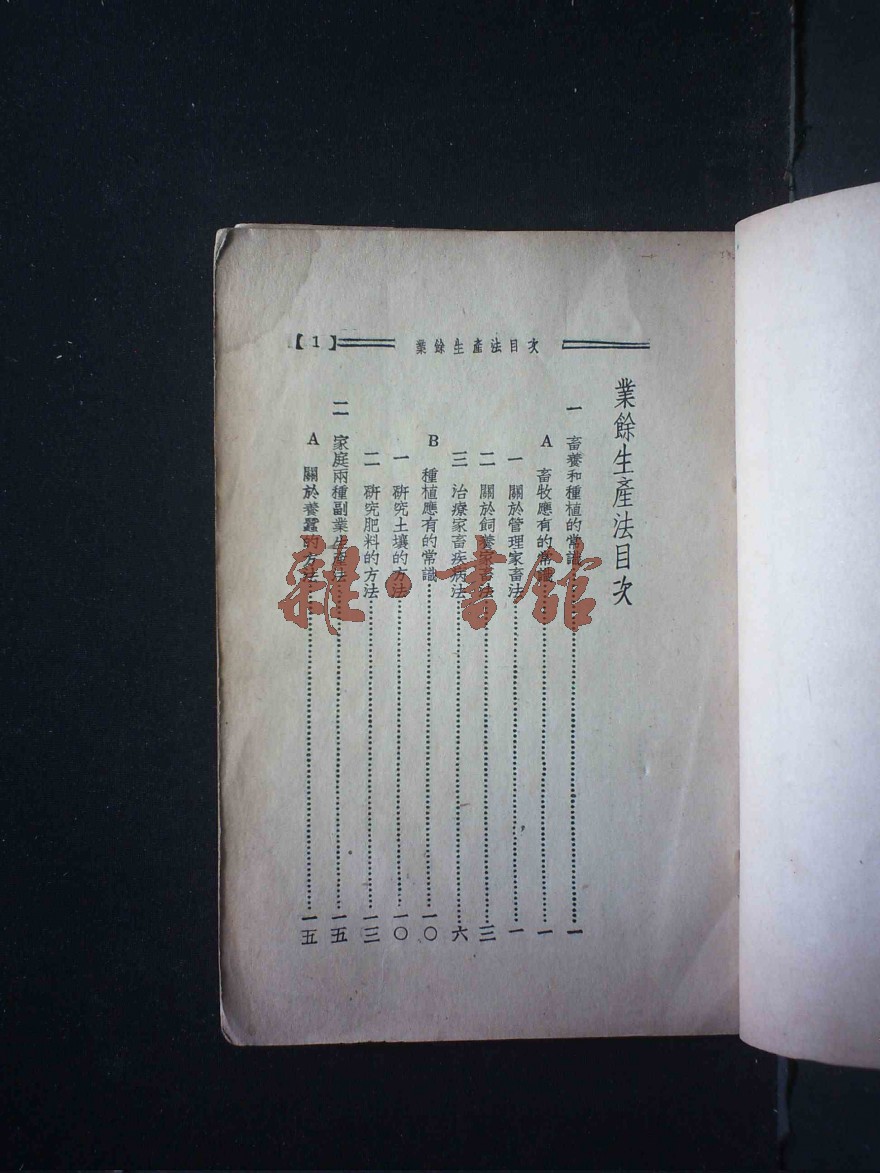 【1】 業餘生產法目次
業餘生產法目次
一 畜養和種植的常識……一
A 畜牧應有的常識……一
一 關於管理家畜法……一
二 關於飼養家畜法……三
三 治療家畜疾病法……六
B 種植應有的常識……一〇
一 硏究土壤的方法……一〇
二 硏究肥料的方法……一三
二 家庭兩種副業生產法……一五
A 關於養蠶的方法……一五
雜·書館